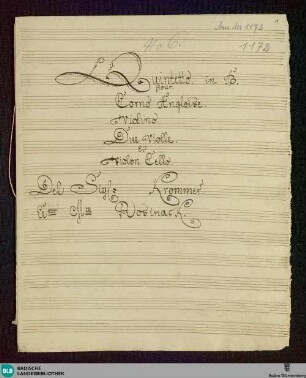 Mus. Hs. 1172
No 6.
1172
Quintetto. in B.
pour
Corno Angloise.
Violino
Due Violle.
et
Violon Cello.
Del Sig.re Krommer
BLB BADISCHE
LANDESBIBLIOTHEK
Baden-Württemberg